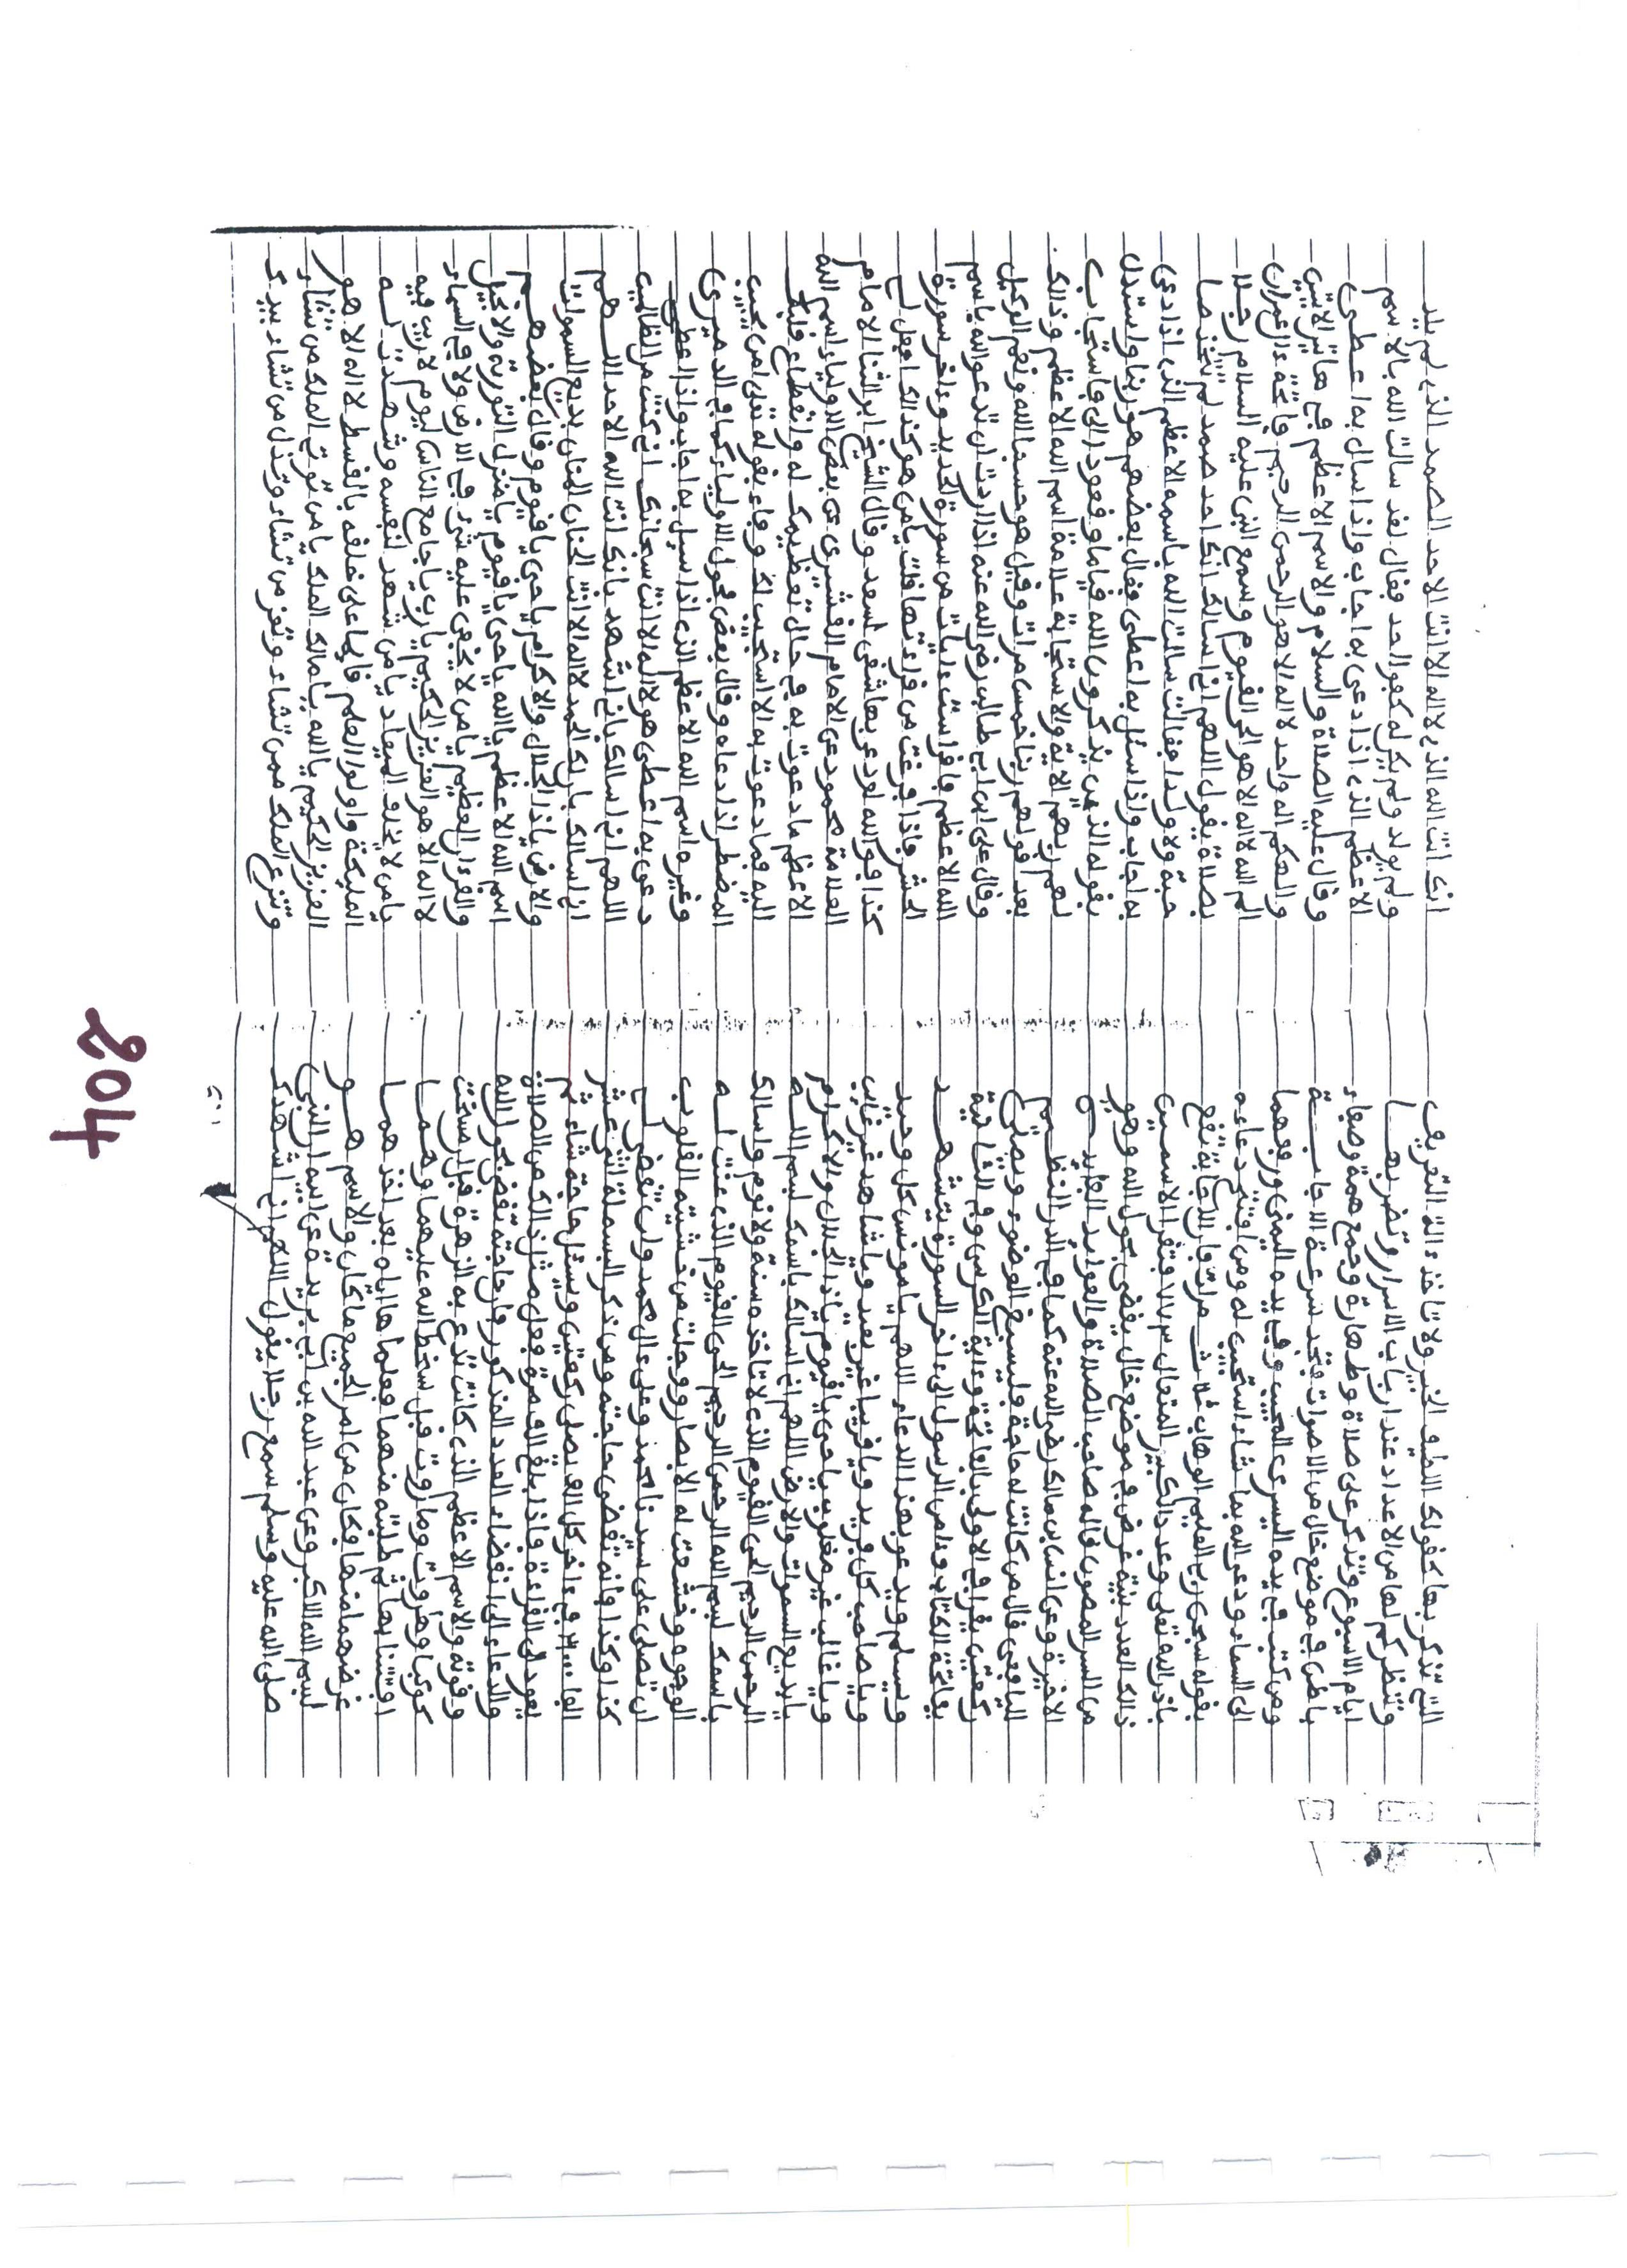 التي تذكر بها كقولك اللطيف الخبير ولا تاخذ ءالة التعريف
وتنظر كم لها من الاعداد عند ارباب الاسرار وتضربها
ايام الاسبوع وتذكر على صلاة وطهارة وجمع همة وصفاء
باطن في موضع خال من الاصوات تجد سرعة الاجابة
ومن كتب في يده اليسرى المجيب وفي يده اليمنى ورفعهما
الى السماء ودعى الله بما شاء استجيب له ومن افتتح دعاءه
بقوله سبحن ربي العليم الوهاب ثلاث مرات فان الاجابة تقع
باذن الله تعلى وعدد الكبير المتعال فتقرا الاسمين
ذالك العدد بنية غرض في موضع خال يقضى بحول الله وهو
من السر المصون قاله صاحب الصلاة والعوايد الفايدة
الاخيرة وعن انس بن مالك رضي الله عنه كما في الدر النظيم
لليافعي قال من كانت له حاجة فليسبغ الوضوء ويصلي
ركعتين يقرا في الاولى بالفاتحة وءاية الكرسي وفي الثانية
بفاتحة الكتاب وءامن الرسول الى ءاخر السورة يتشهد
ويسلم ويدعو بهذا الدعاء اللهم يا مونس كل وحيد
ويا صاحب كل فريد ويا قريبا غير بعيد ويا شاهد غير غايب
ويا غالب غير مغلوب يا حي يا قيوم يا ذا الجلال والاكرام
يا بديع السموات والارض اللهم اني اسالك باسمك بسم الله
الرحمن الرحيم الحي القيوم الذي لا تاخذه سنة ولا نوم واسالك
باسمك بسم الله الرحمن الرحيم الحي القيوم الذي عنت له
الوجوه وخشعت له الابصار ووجلت من خشيته القلوب
ان تصلي على سيدنا محمد وعلى ءال محمد وان تقضي لي
كذا وكذا فانه تقضى حاجته ومن ذكر البسملة اثني عشر
الفا في ءاخر كل الف يصلي ركعتين ويسئل حاجة شاء ثم
يعود الى القراءة فاذا بلغ الالف مرة فعل مثل ذالك من الصلاة
والدعاء الى انقضاء العدد المذكور فان حاجته تقضى بحول الله
وقوته والاسم الاعظم الذي كانت تدعى به الزهرة قبل مسخت
كوكبا وهروت وماروت قبل سخط الله عليهما وهما
افتتنا بها ثم طلبته منهما فعلماها اياه بعد اخذهما
غرضهما منها فكان من امر الجميع ما كان والاسم هو
بسم الله الاكبر وعن عبد الله بن ابي بريدة عن ابيه ان النبي
صلى الله عليه وسلم سمع رجلا يقول اللهم اني اشهدك
انك انت الله الذي لا اله الا انت الاحد الصمد الذي لم يلد
ولم يولد ولم يكن له كفوا احد فقال لقد سالت الله بالاسم
الاعظم الذي اذا دعي به اجاب واذا سال به اعطى
وقال عليه الصلاة والسلام والاسم الاعظم في هاتين الايتين
والهكم اله واحد لا اله الا هو الرحمن الرحيم وفاتحة ءال عمران
الم الله لا اله الا هو الحي القيوم وسمع النبي عليه السلام رجلا
بصلاة يقول اللهم اني اسالك انك احد صمد لم تتخذ صا
حبة ولا ولدا فقال سالت الله باسمه الاعظم الذي اذا دعي
به اجاب واذا سئل به اعطى وقال بعضهم هو ربنا واستدل
بقوله الذين يذكرون الله قياما وقعودا الى فاستجاب
لهم ربهم الاية والاستجابة علامة اسم الله الاعظم وذالك
بعد قولهم ربنا خمس مرات وقيل هو حسبنا الله ونعم الوكيل
وقال علي ابن ابي طالب رضي الله عنه اذا اردت ان تدعو الله باسم
الله الاعظم فاقرا ست ءايات من سورة الحديد وءاخر سورة
الحشر فاذا فرغت من قراءتها فقل يامن هو كذالك افعل لي
كذا فوالله لو دعي بها شقي لسعد وقال الشيخ ابن البنا الامام
العلامة محمود عن الامام القشيري عن بعض الاولياء اسم الله
الاعظم ما دعوت به في حال تعظيمك له وانقطاع قلبك
اليه فما دعوت به الا استجيب لك وجاء بقوله تعلى امن يجيب
المضطر اذا دعاه وقال بعض فحول الاولياء كما في الدميري
وغيره اسم الله الاعظم الذي اذا سيل به اجاب واذا
دعي به اعطى هو لا اله الا انت سبحانك اني كنت من الظالمين
اللهم اني اسالك باني اشهد بانك انت الله الاحد اللهم
اني اسالك بان لك الحمد لا اله الا انت الحنان المنان بديع السموات
والارض يا ذا الجلال والاكرام يا حي يا قيوم وقال بعضهم
اسم الله الاعظم يا الله يا حي يا قيوم يا منزل التورية والانجيل
والقرءان العظيم يا من لا يخفى عليه شيء في الارض ولا في السماء
لا اله الا هو العزيز الحكيم يا رب يا جامع الناس ليوم لا ريب فيه
يا من لا يخلف الميعاد يا من شهد لنفسه وشهدت له
المليكة واولوا العلم قايما على خلقه بالقسط لا اله الا هو
العزيز الحكيم يا الله يا مالك الملك يا من توتي الملك من تشاء
وتنزع الملك ممن تشاء وتعز من تشاء وتذل من تشاء بيدك
204